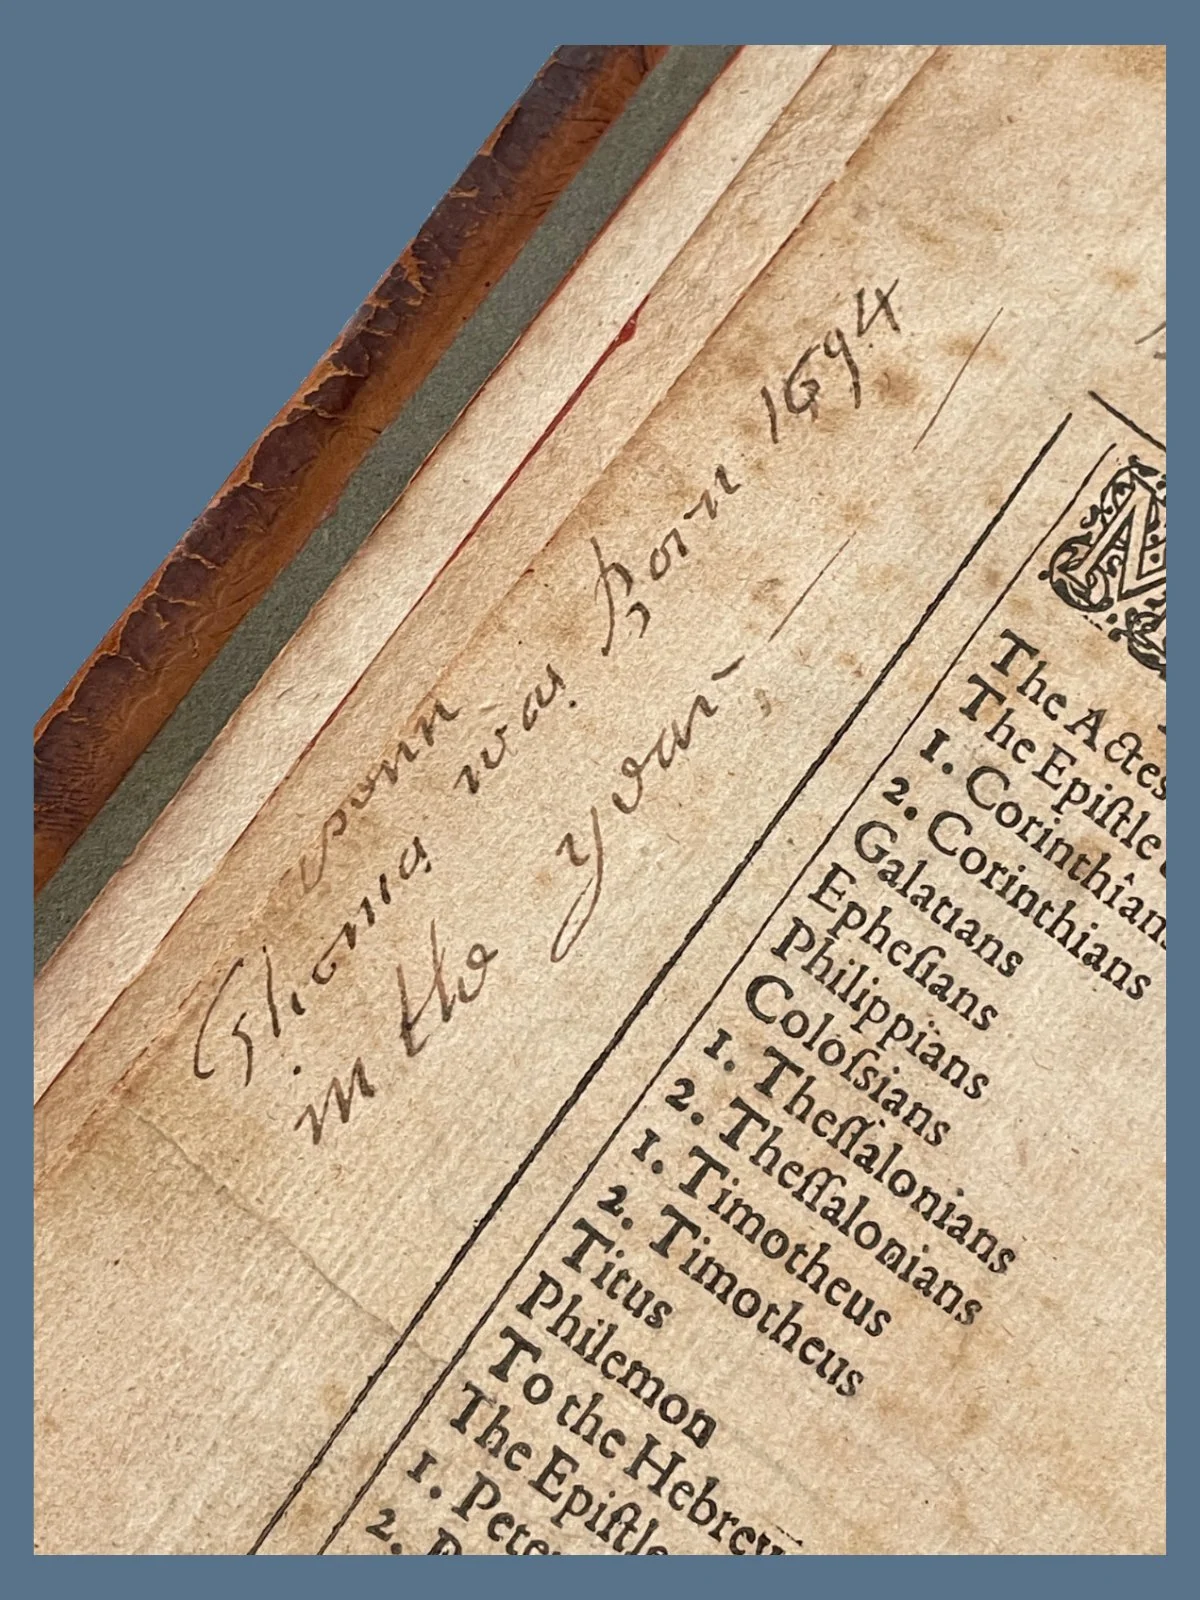 Thomas was Born 1694
in the year
M
The Actes
The Epiſtle
1. Corinthians
2. Corinthians
Galatians
Epheſians
Philippians
Coloſsians
1. Theſſalonians
2. Theſſalonians
1. Timotheus
2. Timotheus
Titus
Philemon
To the Hebrew
The Epiſtle
1. Pete
2.